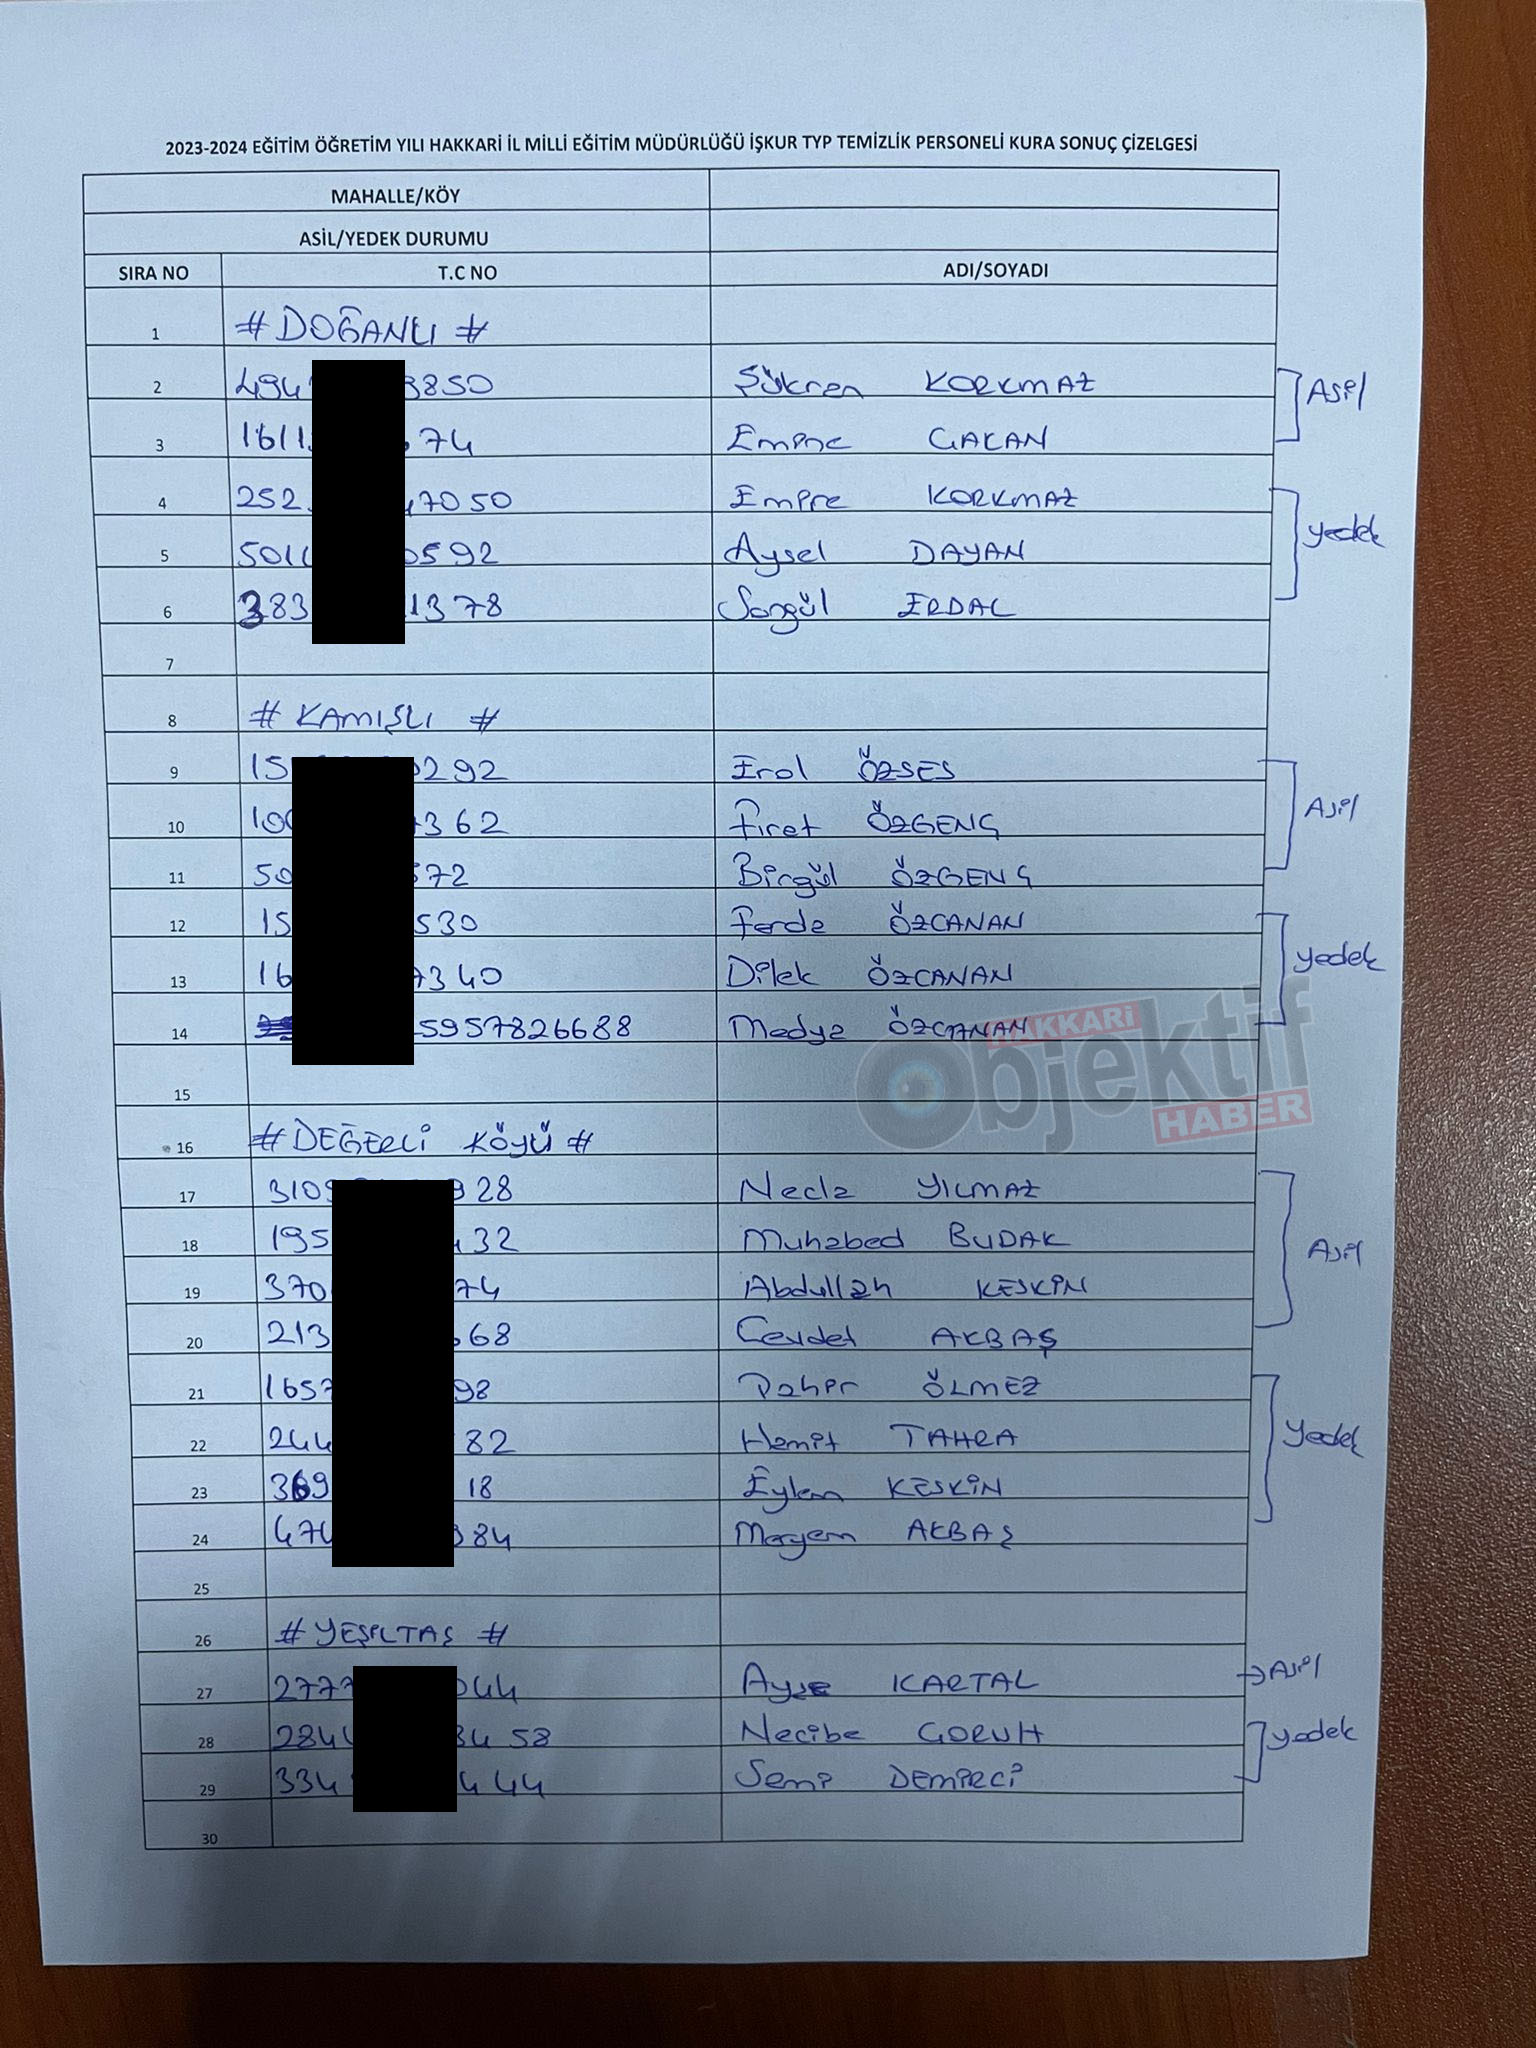 2023-2024 EĞİTİM ÖĞRETİM YILI HAKKARİ İL MİLLİ EĞİTİM MÜDÜRLÜĞÜ İŞKUR TYP TEMİZLİK PERSONELİ KURA SONUÇ ÇİZELGESİ
MAHALLE/KÖY
ASİL/YEDEK DURUMU
SIRA NO T.C NO ADI/SOYADI
1 # DOĞANLI #
2 494 850 Şükran KORKMAZ Asil
3 1611 74 Emine CALAN
4 252 7050 Emine KORKMAZ
5 501 592 Aysel DAYAN yedek
6 383 1378 Songül ERDAL
7
8 # KAMIŞLI #
9 15 292 Erol ÖZSES
10 10 362 Fırat ÖZGENÇ Asil
11 50 72 Birgül ÖZGENÇ
12 15 530 Ferda ÖZCANAN
13 16 340 Dilek ÖZCANAN yedek
14 5957826688 Medya ÖZCANAN
HAKKARİ
Objektif
HABER
15
16 # DEĞERLİ KÖYÜ #
17 310 928 Necla YILMAZ
18 195 32 Muhabed BUDAK Asil
19 370 74 Abdullah KESKİN
20 213 68 Cevdet AKBAŞ
21 165 98 Dahir ÖLMEZ
22 244 82 Hamit TAHRA Yedek
23 369 18 Eylem KESKİN
24 47 384 Meryem AKBAŞ
25
26 # YEŞİLTAŞ #
27 277 044 Ayşe KARTAL → Asil
28 284 34 58 Necibe yedek
29 334 444 Semi DEMİRCİ
30